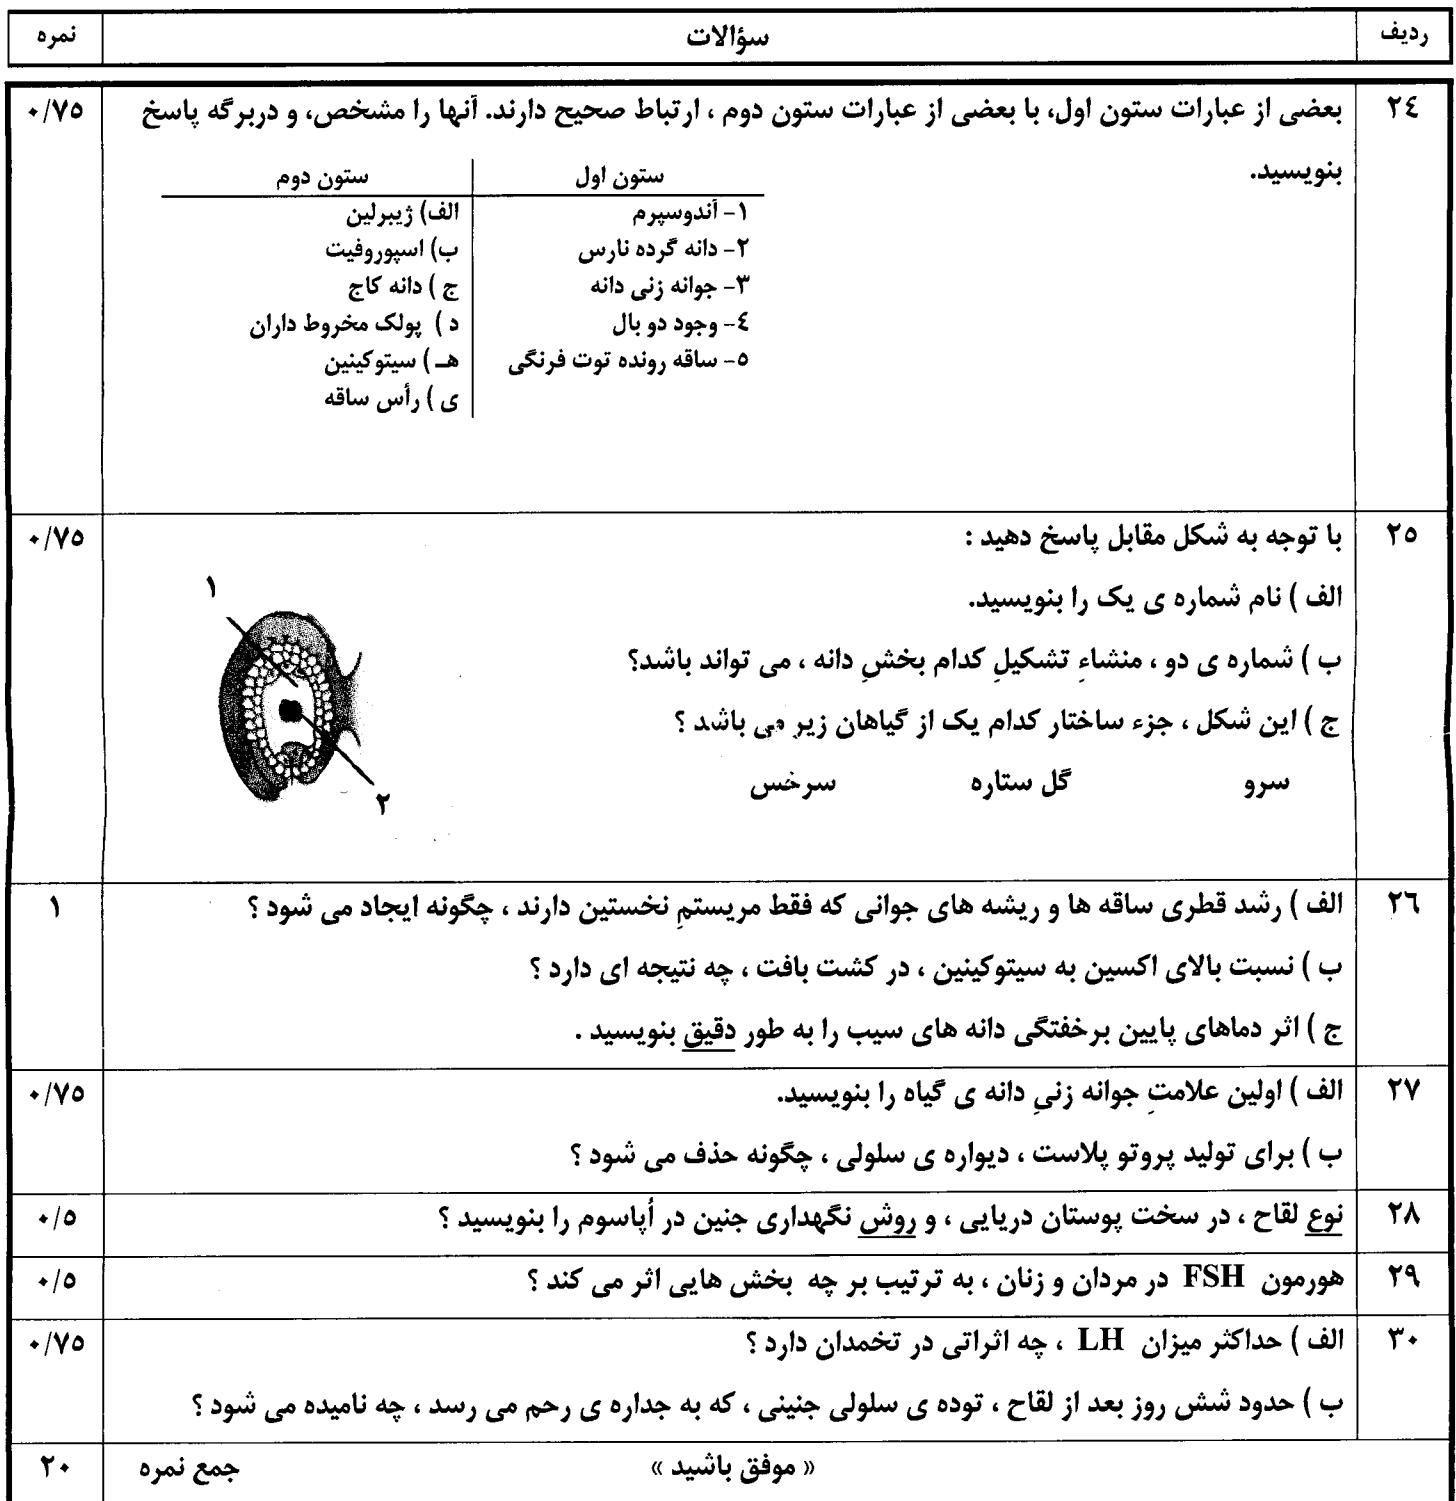 ردیف سؤالات نمره
۲٤ بعضی از عبارات ستون اول، با بعضی از عبارات ستون دوم ، ارتباط صحیح دارند. آنها را مشخص، و دربرگه پاسخ ۰/۷۵
بنویسید.
ستون اول ستون دوم
۱- آندوسپرم الف) ژیبرلین
۲- دانه گرده نارس ب) اسپوروفیت
۳- جوانه زنی دانه ج ) دانه کاج
٤- وجود دو بال د ) پولک مخروط داران
۵- ساقه رونده توت فرنگی هـ ) سیتوکینین
ی ) رأس ساقه
۲۵ با توجه به شکل مقابل پاسخ دهید : ۰/۷۵
الف ) نام شماره ی یک را بنویسید.
ب ) شماره ی دو ، منشاءِ تشکیلِ کدام بخشِ دانه ، می تواند باشد؟
ج ) این شکل ، جزء ساختار کدام یک از گیاهان زیر می باشد ؟
سرو گل ستاره سرخس
۱
۲
۲٦ الف ) رشد قطری ساقه ها و ریشه های جوانی که فقط مریستمِ نخستین دارند ، چگونه ایجاد می شود ؟ ۱
ب ) نسبت بالای اکسین به سیتوکینین ، در کشت بافت ، چه نتیجه ای دارد ؟
ج ) اثر دماهای پایین برخفتگی دانه های سیب را به طور دقیق بنویسید .
۲۷ الف ) اولین علامتِ جوانه زنیِ دانه ی گیاه را بنویسید. ۰/۷۵
ب ) برای تولید پروتو پلاست ، دیواره ی سلولی ، چگونه حذف می شود ؟
۲۸ نوع لقاح ، در سخت پوستان دریایی ، و روش نگهداری جنین در اُپاسوم را بنویسید ؟ ۰/۵
۲۹ هورمون FSH در مردان و زنان ، به ترتیب بر چه بخش هایی اثر می کند ؟ ۰/۵
۳۰ الف ) حداکثر میزان LH ، چه اثراتی در تخمدان دارد ؟ ۰/۷۵
ب ) حدود شش روز بعد از لقاح ، توده ی سلولی جنینی ، که به جداره ی رحم می رسد ، چه نامیده می شود ؟
« موفق باشید » جمع نمره ۲۰